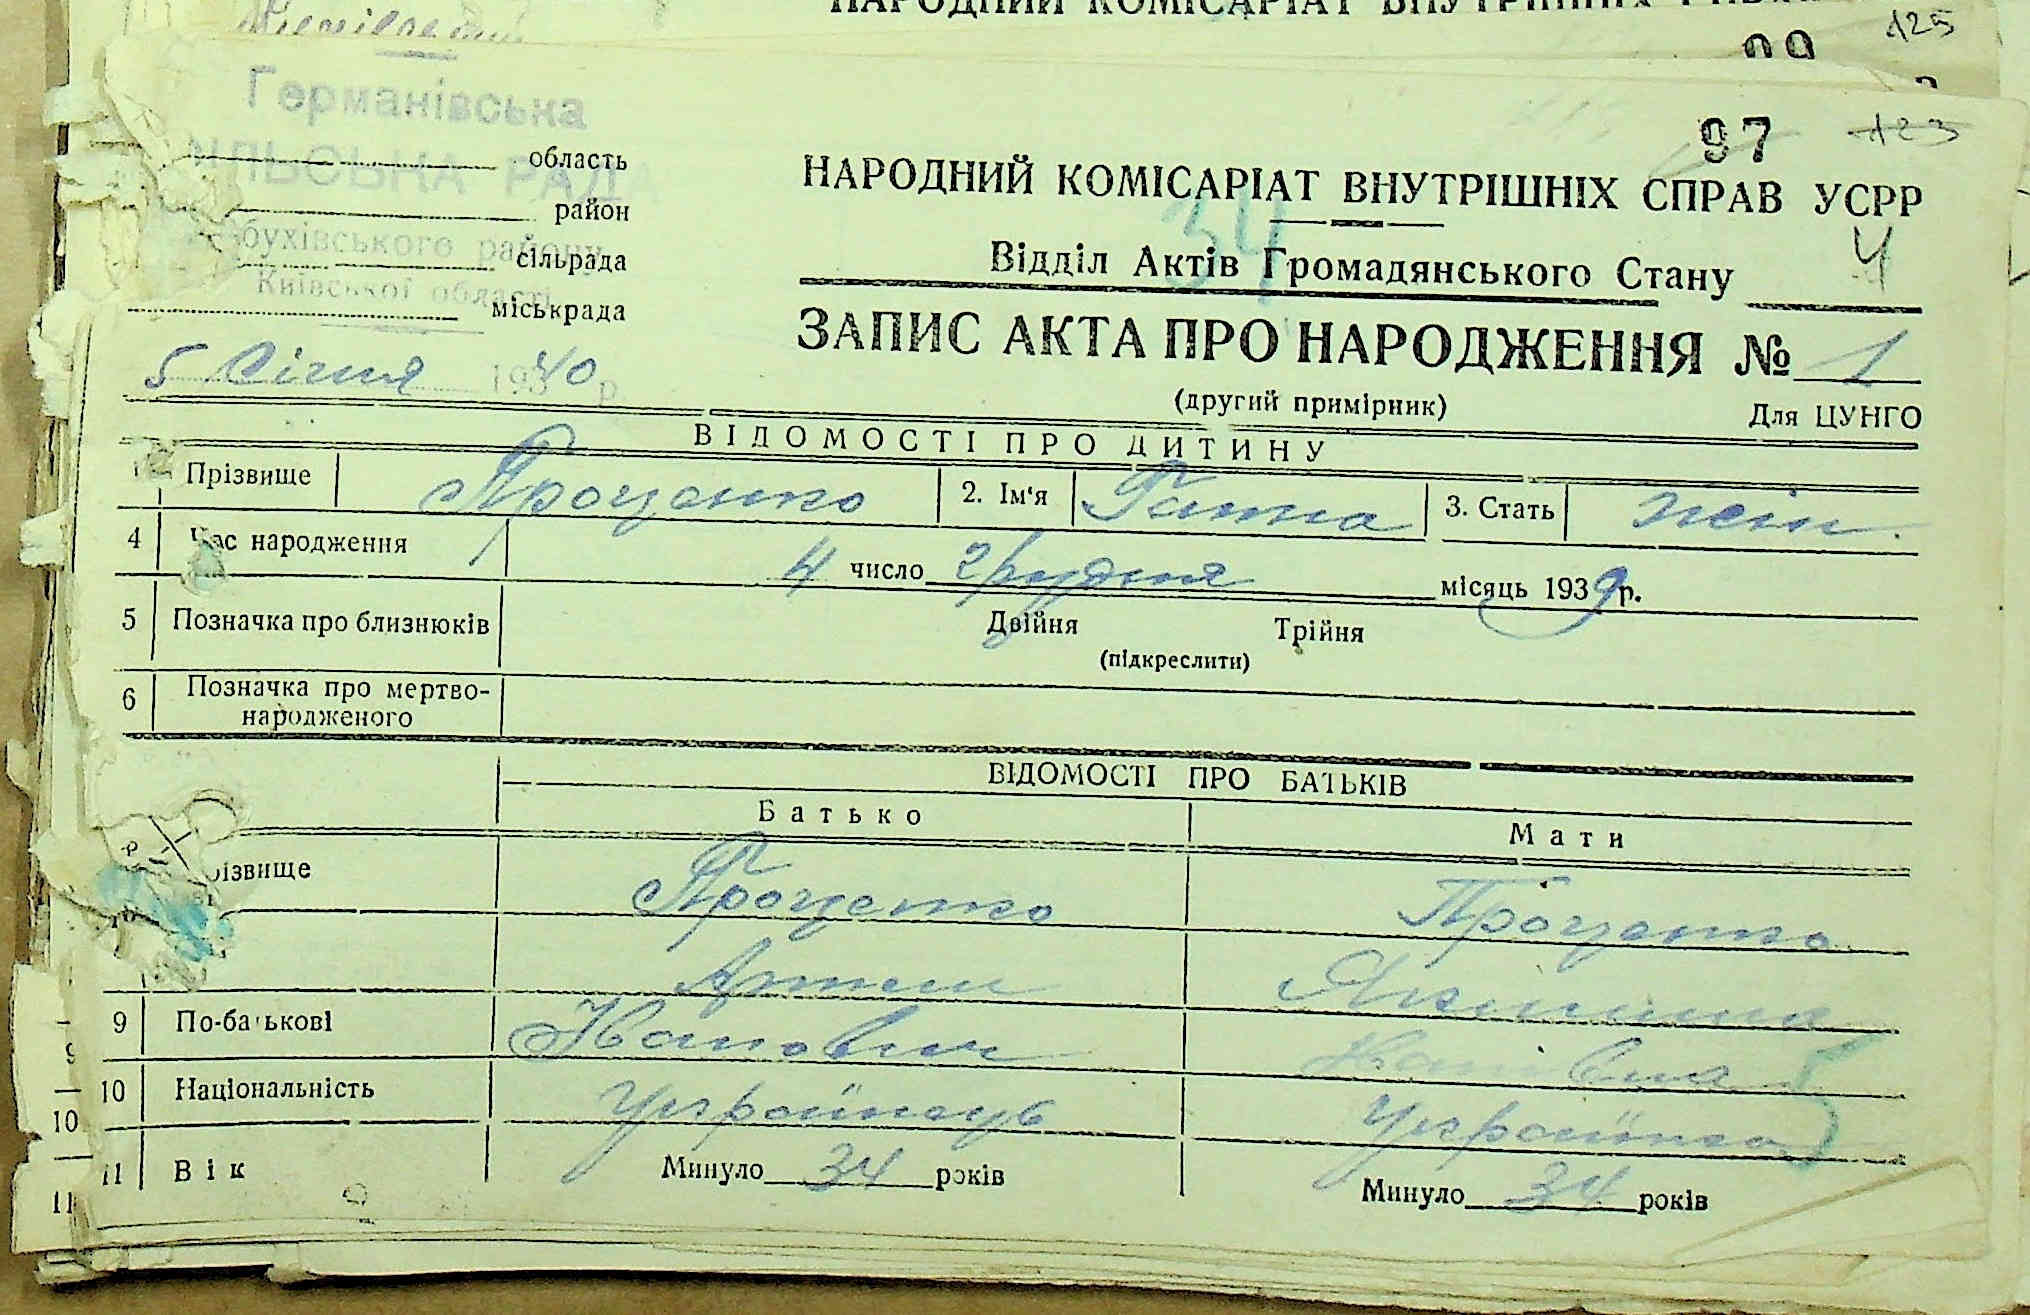 125
97 123
Германівська
СІЛЬСЬКА РАДА
бухівського району
Київської області
область
район
сільрада
міськрада
НАРОДНИЙ КОМІСАРІАТ ВНУТРІШНІХ СПРАВ УСРР
34
4
Відділ Актів Громадянського Стану
ЗАПИС АКТА ПРО НАРОДЖЕННЯ № 1
5 Січня 1940 р.
(другий примірник) Для ЦУНГО
ВІДОМОСТІ ПРО ДИТИНУ
Прізвище Проценко 2. Ім‘я Ганна 3. Стать жін.
4 Час народження 4 число Грудня місяць 1939 р.
5 Позначка про близнюків Двійня Трійня
(підкреслити)
6 Позначка про мертво-
народженого
ВІДОМОСТІ ПРО БАТЬКІВ
Батько Мати
різвище Проценко Проценко
Артем
9 По-батькові Іванович Іванівна
10 Національність Українець Українка
11 Вік Минуло 34 років Минуло 34 років
10
11